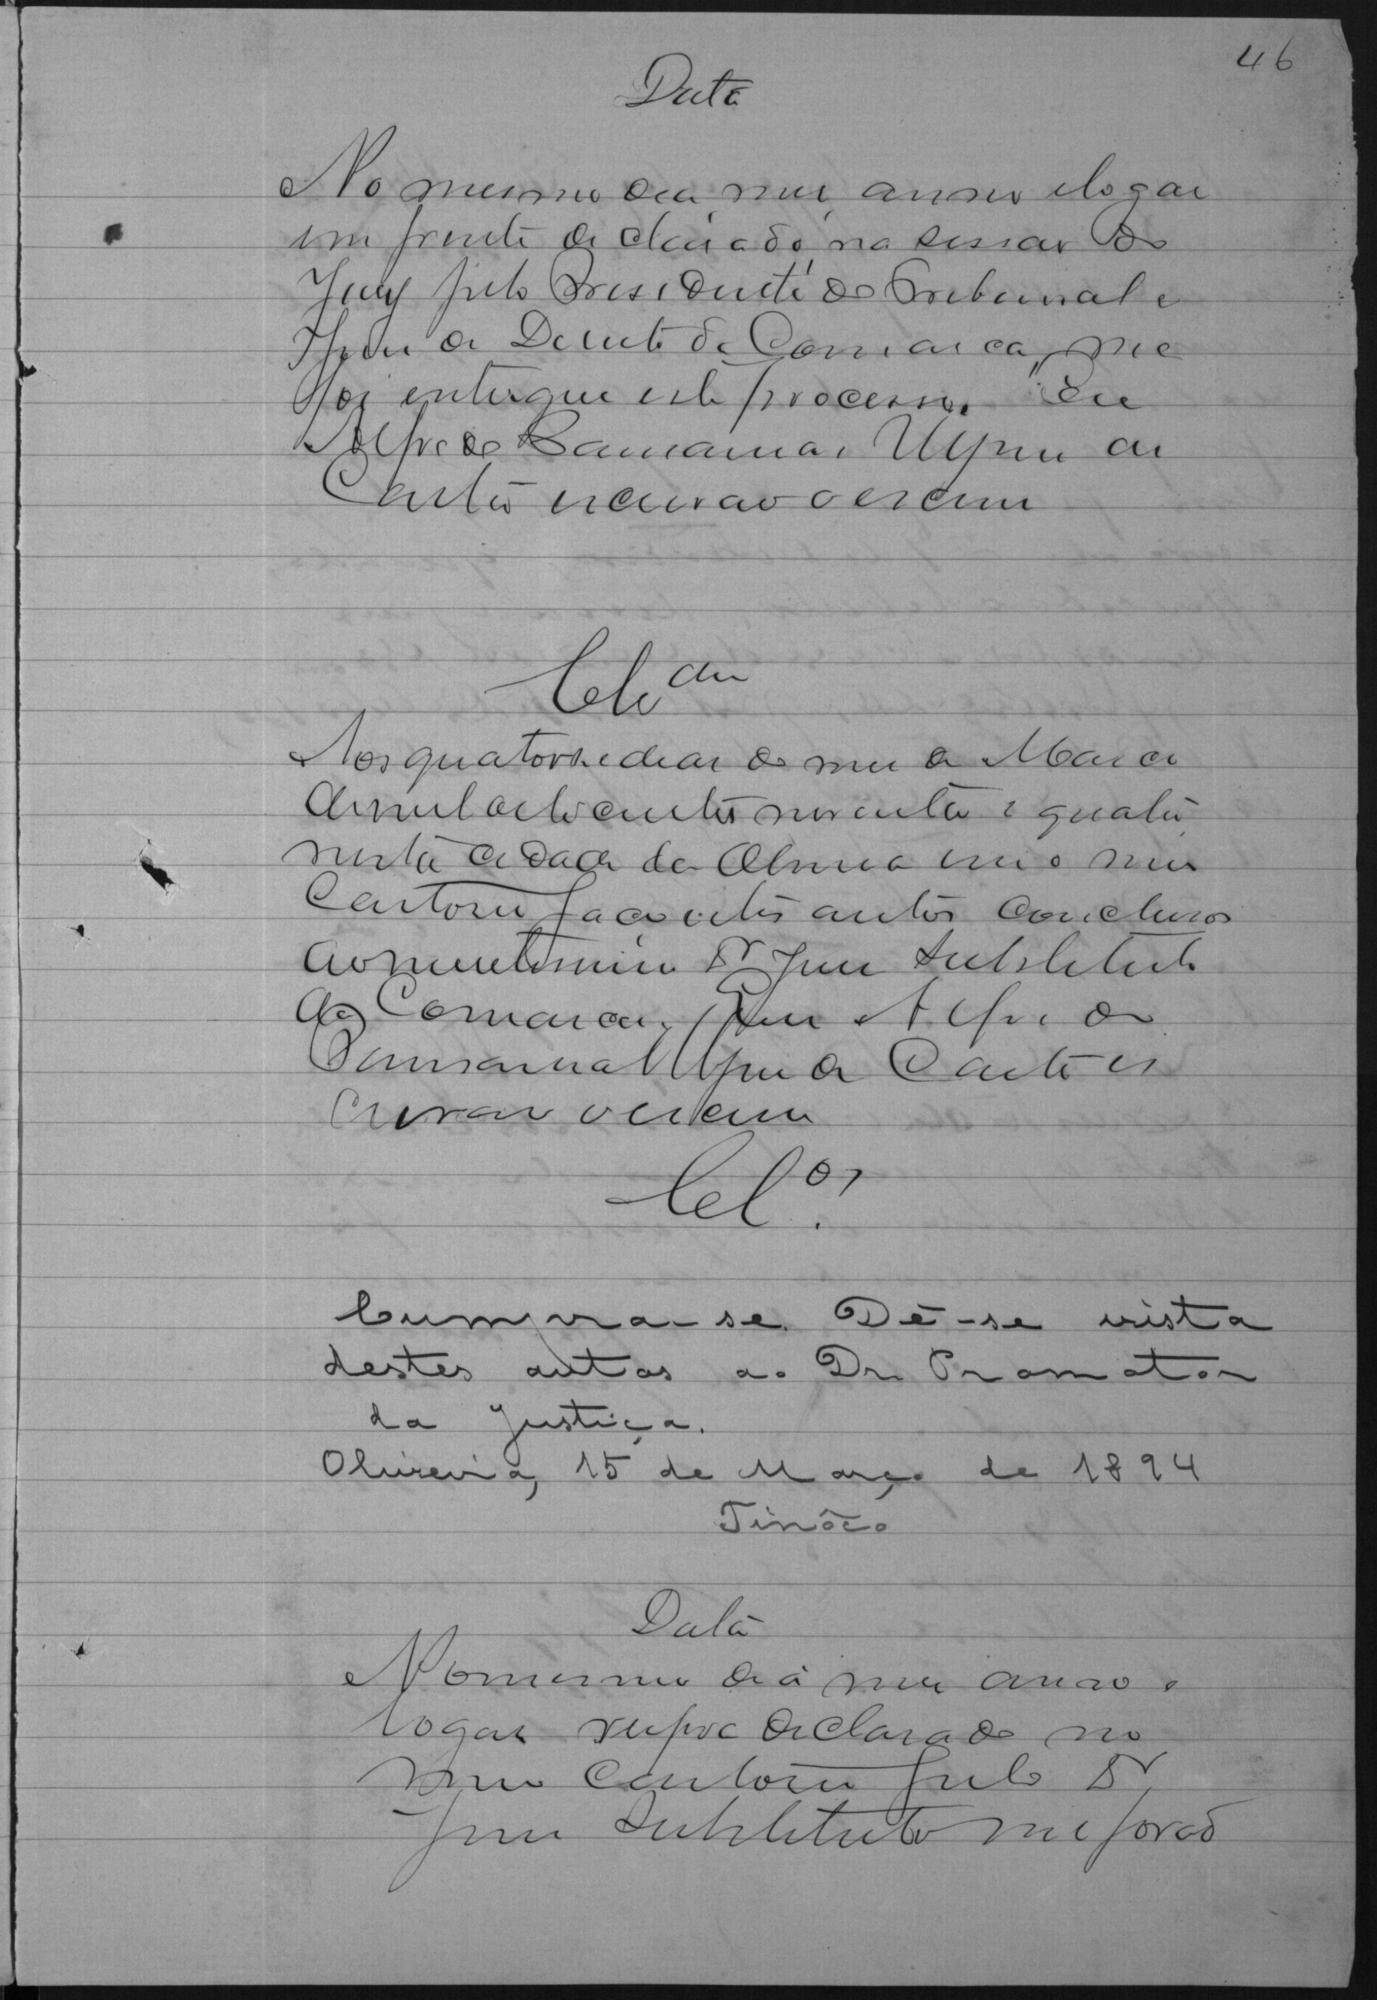 46
Data
No mesmo dia mez anno e logar
em frente declarado na sessão do
Jury pelo Presidente do Tribunal e
Juiz de Direito da Comarca, me
foi entregue este processo. Eu
Alfredo
Cartr escrivão o escrevi
Clsam
Aos quatorze dias do mez de Março
de mil oitocentos noventa e quatro
nesta cidade da Oliveira em o meu
Cartorio faço estes autos conclusos
ao meretissimo Dr Juiz Substituto
da Comarca. Eu Alfredo
de Castr es
crivão o escrevi
Clos.
Cumpra-se. Dê-se vista
destes autos ao Dr. Promotor
da Justiça.
Oliveira, 15 de Março de 1894
Tinôco
Data
No mesmo dia mez anno e
logar supra declarado no
meu Cartorio pelo Dr
Juiz Substituto me forão